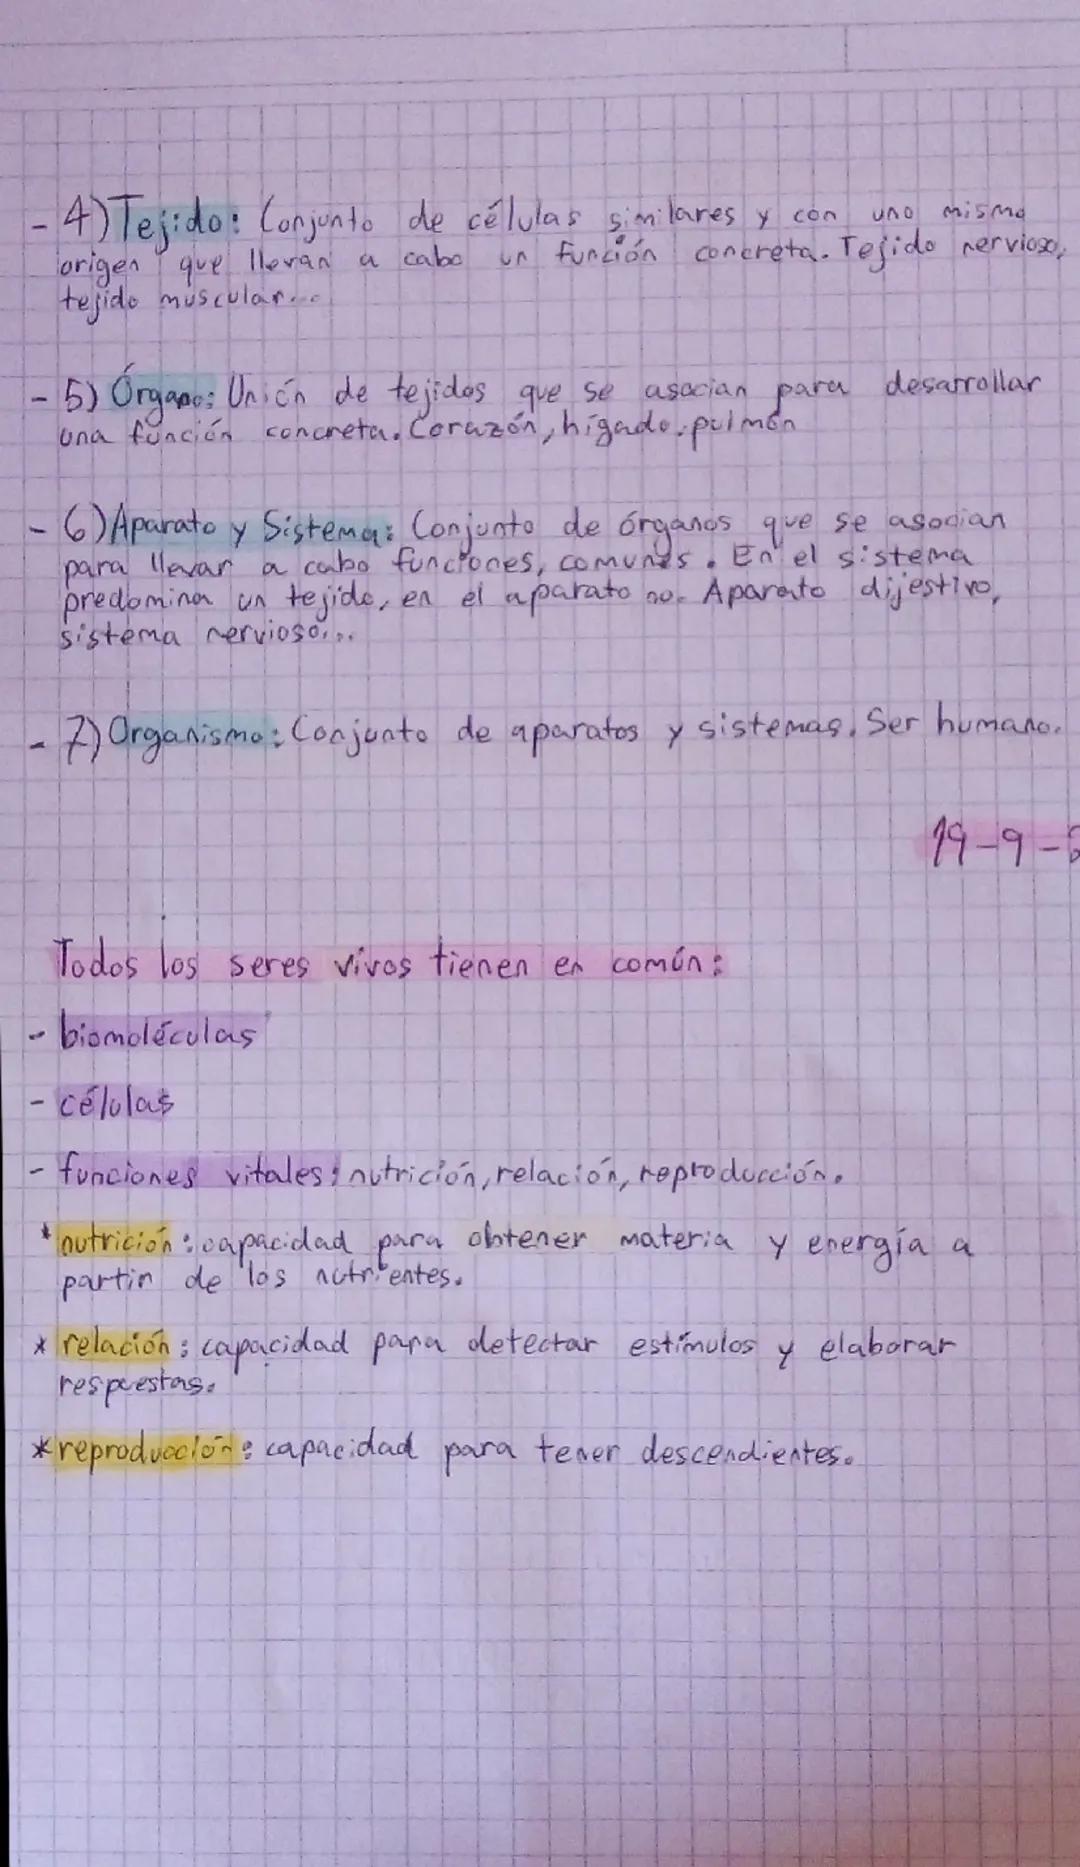 - 4) Tejido: Conjunto de células similares y con uno mismo
origen que llevan a cabo un función concreta. Tejido nervioso,
tejido muscular...
- 5) Órgano: Unión de tejidos que se asocian para desarrollar
una función concreta. Corazón, hígado, pulmón
- 6) Aparato y Sistema: Conjunto de órganos que se asocian
para llevar a cabo funciones, comunes. En el sistema
predomina un tejido, en el aparato no. Aparato dijestivo,
sistema nervioso...
- 7) Organismo: Conjunto de aparatos y sistemas. Ser humano.
19-9-
Todos los seres vivos tienen en común:
- biomoléculas
- células
- funciones vitales: nutrición, relación, reproducción.
* nutrición: capacidad para obtener materia y energía a
partir de los nutrientes.
* relación: capacidad para detectar estímulos y elaborar
respuestas.
* reproducción: capacidad para tener descendientes.